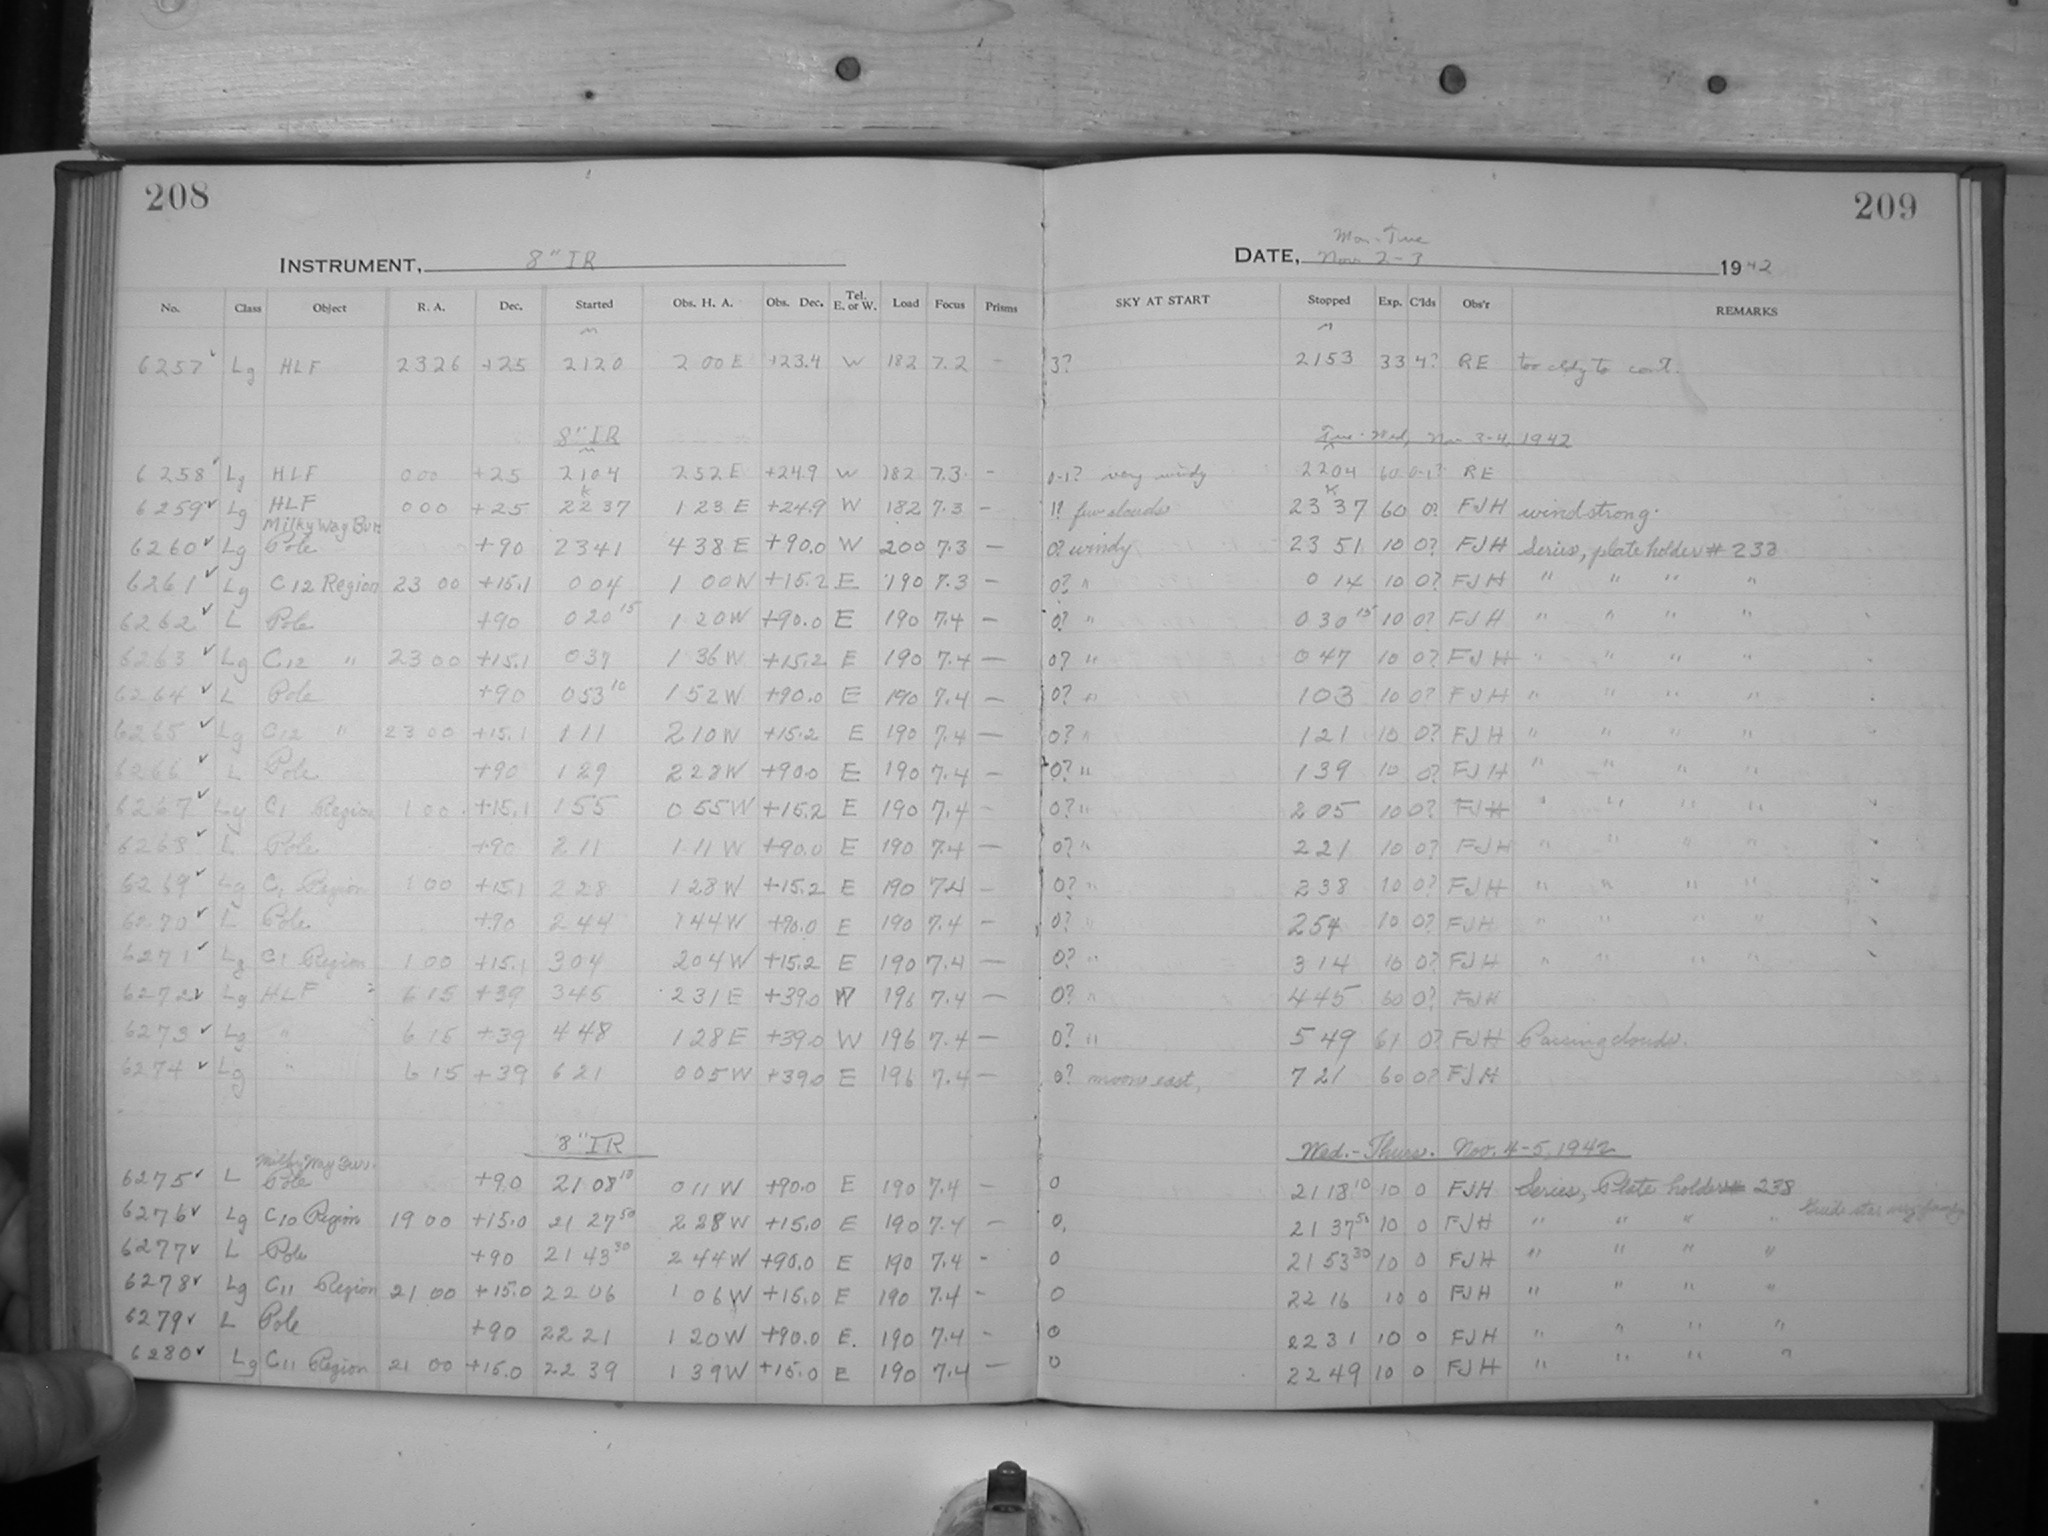 208
209
INSTRUMENT, 8" IR
Mon-Tue
DATE, Nov. 2-3 1942
No. Class Object R. A. Dec. Started Obs. H. A. Obs. Dec. Tel. E. or W. Load Focus Prisms SKY AT START Stopped Exp. C'lds Obs'r REMARKS
6257 ✓ Lg HLF 23 26 +25 21 20 2 00 E +23.4 W 182 7.2 - 3? 21 53 33 4? RE too cldy to cont.
8" IR Tue-Wed, Nov 3-4, 1942
6258 ✓ Lg HLF 0 00 +25 21 04 2 52 E +24.9 W 182 7.3 - 0-1? very windy 22 04 60 0-1? RE
6259 ✓ Lg HLF 0 00 +25 22 37 1 23 E +24.9 W 182 7.3 - 1? few clouds 23 37 60 0? FJH wind strong.
Milky Way Bur.
6260 ✓ Lg Pole +90 23 41 4 38 E +90.0 W 200 7.3 - 0? windy 23 51 10 0? FJH Series, plate holder # 238
6261 ✓ Lg C12 Region 23 00 +15.1 0 04 1 00 W +15.2 E 190 7.3 - 0? " 0 14 10 0? FJH " " " "
6262 ✓ L Pole +90 0 20 15 1 20 W +90.0 E 190 7.4 - 0? " 0 30 15 10 0? FJH " " " "
6263 ✓ Lg C12 " 23 00 +15.1 0 37 1 36 W +15.2 E 190 7.4 - 0? " 0 47 10 0? FJH " " " "
6264 ✓ L Pole +90 0 53 10 1 52 W +90.0 E 190 7.4 - 0? " 1 03 10 0? FJH " " " "
6265 ✓ Lg C12 " 23 00 +15.1 1 11 2 10 W +15.2 E 190 7.4 - 0? " 1 21 10 0? FJH " " " "
6266 ✓ L Pole +90 1 29 2 28 W +90.0 E 190 7.4 - 0? " 1 39 10 0? FJH " " " "
6267 ✓ Lg C1 Region 1 00 +15.1 1 55 0 55 W +15.2 E 190 7.4 - 0? " 2 05 10 0? FJH " " " "
6268 ✓ L Pole +90 2 11 1 11 W +90.0 E 190 7.4 - 0? " 2 21 10 0? FJH " " " "
6269 ✓ Lg C1 Region 1 00 +15.1 2 28 1 28 W +15.2 E 190 7.4 - 0? " 2 38 10 0? FJH " " " "
6270 ✓ L Pole +90 2 44 1 44 W +90.0 E 190 7.4 - 0? " 2 54 10 0? FJH " " " "
6271 ✓ Lg C1 Region 1 00 +15.1 3 04 2 04 W +15.2 E 190 7.4 - 0? " 3 14 10 0? FJH " " " "
6272 ✓ Lg HLF 6 15 +39 3 45 2 31 E +39.0 W 196 7.4 - 0? " 4 45 60 0? FJH
6273 ✓ Lg " 6 15 +39 4 48 1 28 E +39.0 W 196 7.4 - 0? " 5 49 61 0? FJH Passing clouds.
6274 ✓ Lg " 6 15 +39 6 21 0 05 W +39.0 E 196 7.4 - 0? moon east, 7 21 60 0? FJH
8" IR Wed.-Thurs. Nov. 4-5, 1942
Milky Way Bur.
6275 ✓ L Pole +90 21 08 10 0 11 W +90.0 E 190 7.4 - 0 21 18 10 10 0 FJH Series, Plate holder # 238
6276 ✓ Lg C10 Region 19 00 +15.0 21 27 50 2 28 W +15.0 E 190 7.4 - 0. 21 37 50 10 0 FJH " " " " Guide star very
6277 ✓ L Pole +90 21 43 30 2 44 W +90.0 E 190 7.4 - 0 21 53 30 10 0 FJH " " " "
6278 ✓ Lg C11 Region 21 00 +15.0 22 06 1 06 W +15.0 E 190 7.4 - 0 22 16 10 0 FJH " " " "
6279 ✓ L Pole +90 22 21 1 20 W +90.0 E. 190 7.4 - 0 22 31 10 0 FJH " " " "
6280 ✓ Lg C11 Region 21 00 +15.0 22 39 1 39 W +15.0 E 190 7.4 - 0 22 49 10 0 FJH " " " "